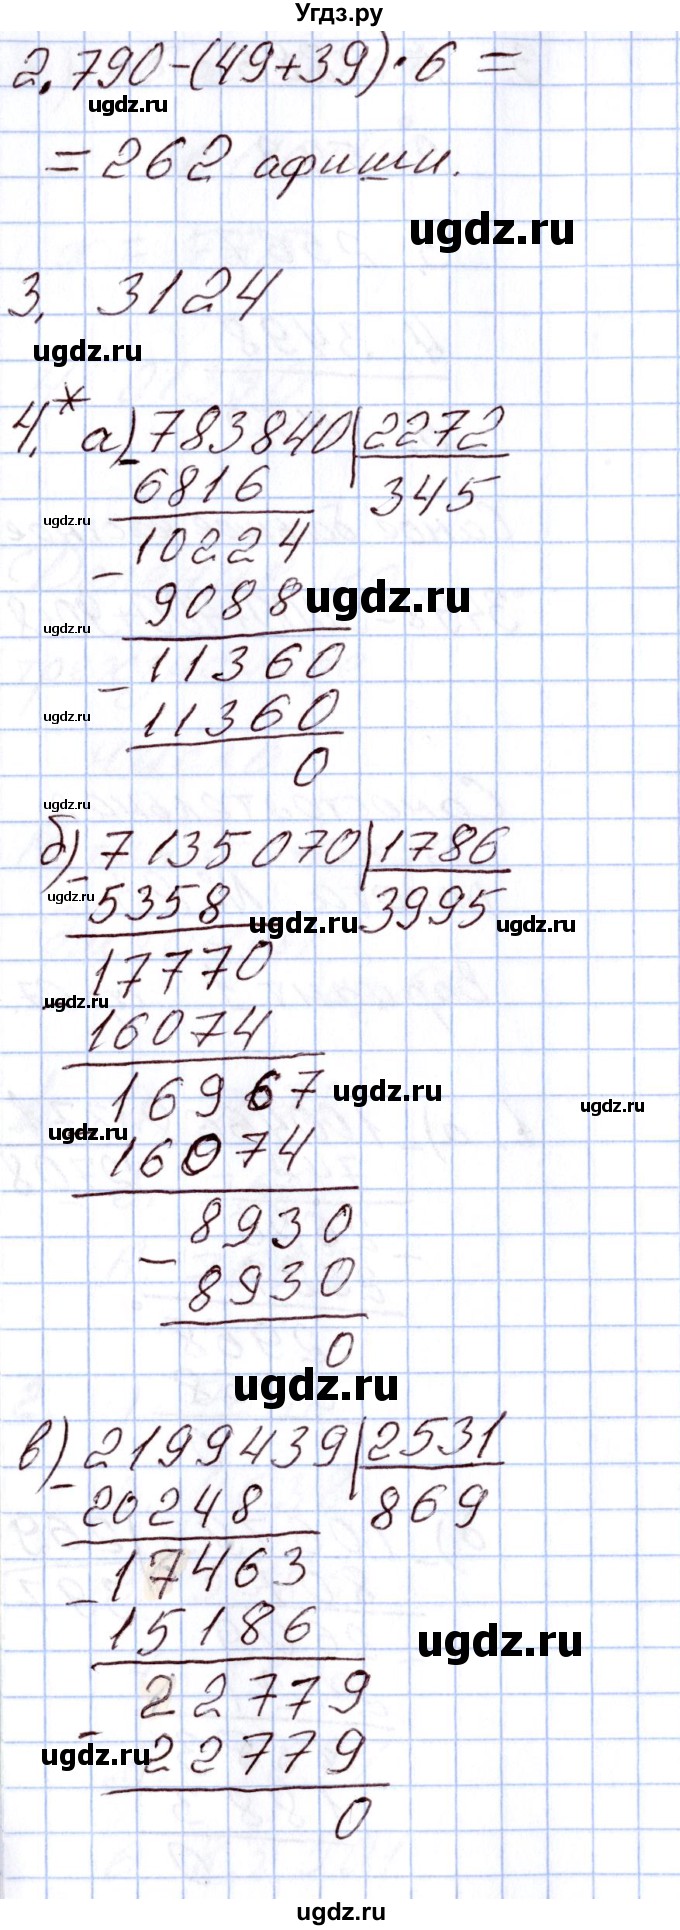 Угдз.ру
2. 790-(49+39)·6=
ugdz.ru
=262 афиши.
ugdz.ru
3. 3124
ugdz.ru
4.* а) 783840 2272
6816 345
ugdz.ru
10224
- 9088 ugdz.ru
ugdz.ru
11360
- 11360
ugdz.ru
0
ugdz.ru
б) 7135070 1786
- 5358 3995
ugdz.ru ugdz.ru ugdz.ru
17770
ugdz.ru
16074
16967 ugdz.ru ugdz.ru
ugdz.ru
16074
8930
- 8930
0
ugdz.ru
в) 2199439 2531
- 20248 869
17463
- 15186
ugdz.ru
22779
- 22779
ugdz.ru
0
ugdz.ru